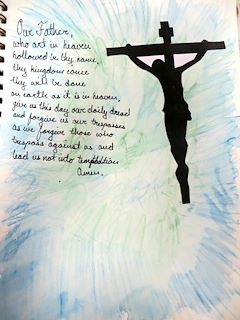 Our Father,
who art in heaven
hollowed be thy name,
thy kingdom come
thy will be done
on earth as it is in heaven,
give us this day our daily bread
and forgive us our trespasses
as we forgive those who
trespass against us and
lead us not into temptation
Amen.